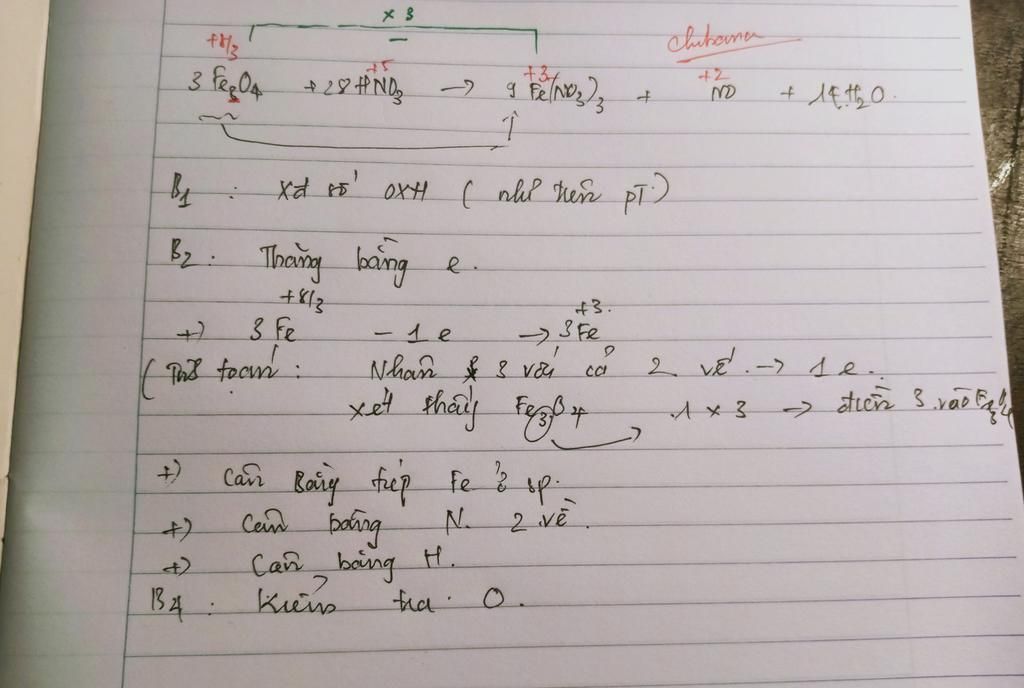 x 3
+8/3 +5 +3 +2 chibana
3 Fe3O4 + 28 HNO3 → 9 Fe(NO3)3 + NO + 14 H2O.
B1 : Xđ số OXH ( như trên pT )
B2 : Thăng bằng e.
+8/3 +3.
+) 3 Fe - 1 e → 3 Fe
toán : Nhân 3 với cả 2 vế. → 1 e.
xét thấy Fe3O4 .1 x 3 → điền 3 vào Fe3O4
+) Cân Bằng tiếp Fe ở sp.
+) Cân bằng N. 2 vế.
+) Cân bằng H.
B4 : Kiểm tra. O.